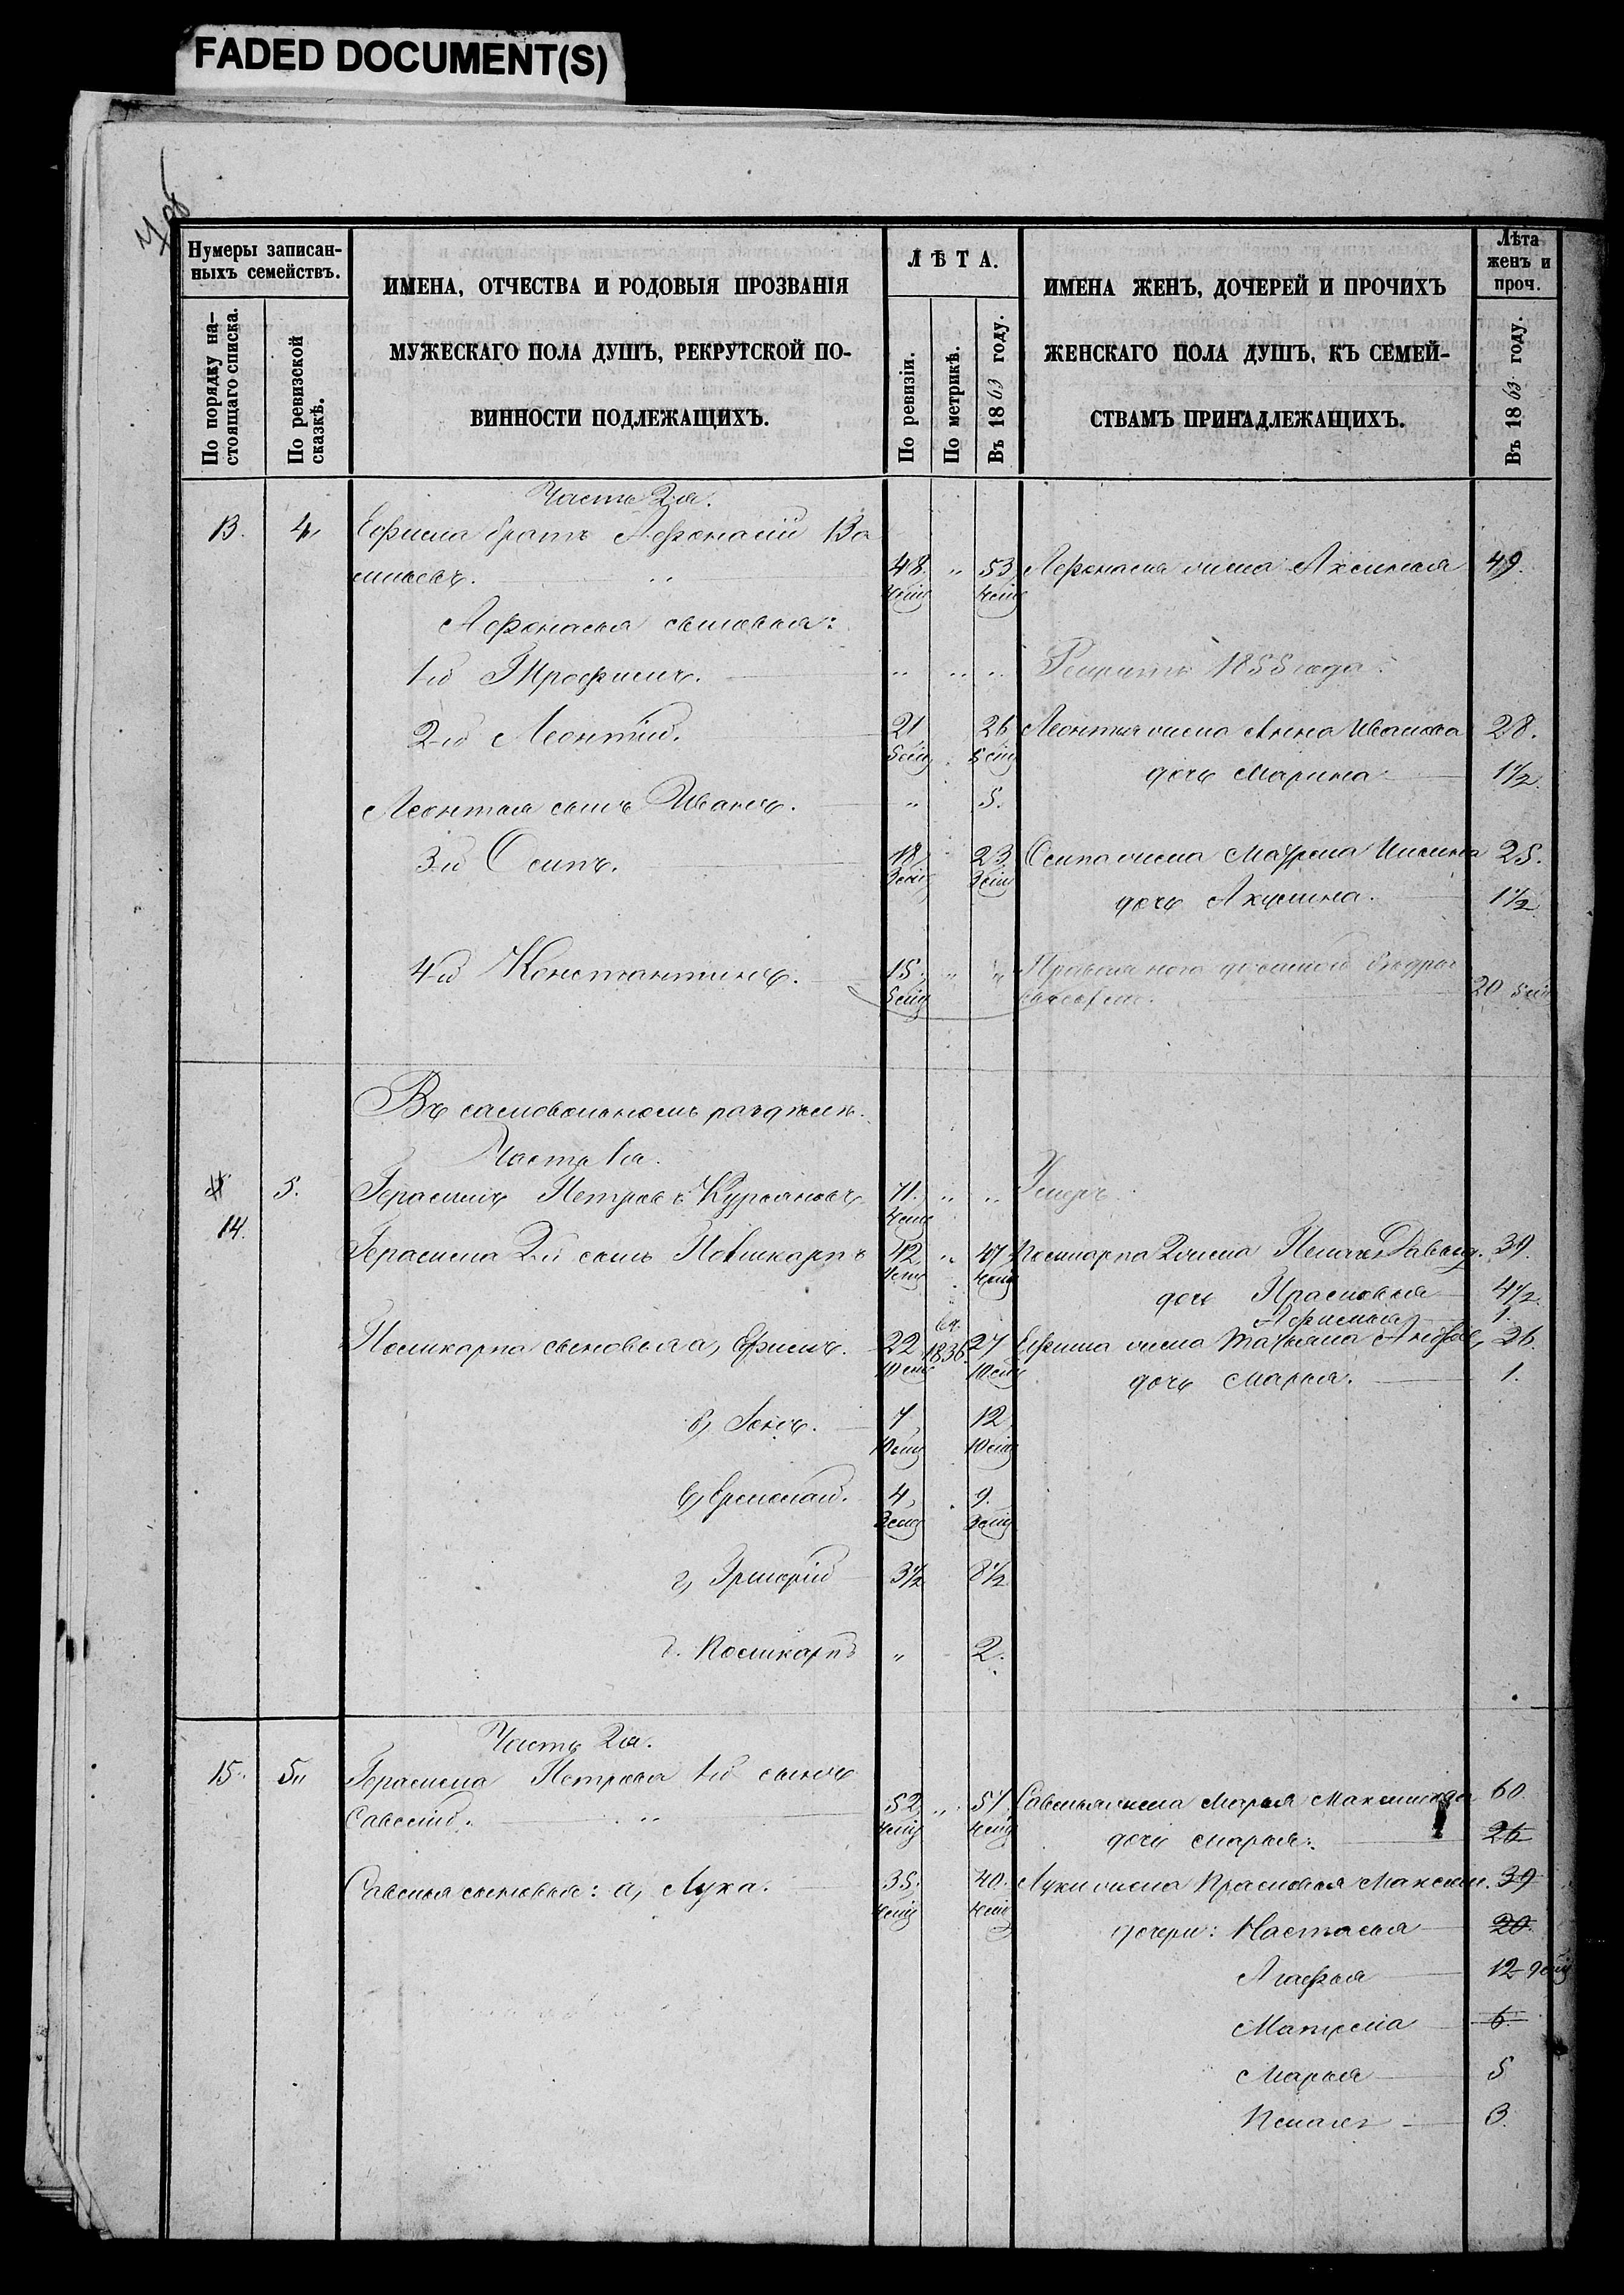 FADED DOCUMENT(S)
Нумеры записан-
ныхъ семействъ.
По порядку на-
стоящаго списка.
По ревизской
сказкѣ.
ИМЕНА, ОТЧЕСТВА И РОДОВЫЯ ПРОЗВАНІЯ
МУЖЕСКАГО ПОЛА ДУШЪ, РЕКРУТСКОЙ ПО-
ВИННОСТИ ПОДЛЕЖАЩИХЪ.
ЛѢТА.
По ревизіи.
По метрикѣ.
Въ 1863 году.
ИМЕНА ЖЕНЪ, ДОЧЕРЕЙ И ПРОЧИХЪ
ЖЕНСКАГО ПОЛА ДУШЪ, КЪ СЕМЕЙ-
СТВАМЪ ПРИНАДЛЕЖАЩИХЪ.
Лѣта
женъ и
проч.
Въ 1863 году.
Часть 2я.
13. 4 Ефима братъ Афонасій Ва
сильевъ. 48 „ 53 Афонасія жена Аксинья 49.
Афонасья сыновья:
1й Трофимъ. „ „ „ Рекрутъ 1855 года.
2й Леонтій. 21 26 Леонтья жена Анна Иванова 28.
дочь Марина 1½
Леонтья сынъ Иванъ. „ 5.
3й Осипъ. 18 23. Осипа жена 25.
дочь Акулина. 1½
4й Константинъ. 15. „ „
20
Въ самовольномъ раздѣлѣ.
Часть 1я.
5. Герасимъ Петровъ 71. „ „ Умеръ
14.
Герасима 2й сынъ Поликарпъ 42 „ 47 Поликарпа жена Давыд. 39.
дочь Прасковья 4½
Афимья 1.
Поликарпа сыновья а, Ефимъ. 22 1836 27 Ефима жена Татьяна 26.
дочь Марья. 1.
б, 7 12
в, Ермолай. 4 9.
г, Григорій 3½ 8½
д. Поликарпъ „ 2.
Часть 2я.
15. 5 Герасима Петрова 1й сынъ
Савелій. 52 „ 57 Савелья жена Марья Максимова 60.
дочь Марья. 26
Савелья сыновья: а, Лука. 35. 40. Луки жена Прасковья Максим. 39
дочери: Настасья 20.
Агафья 12
Матрена 6.
Марья 5
3.